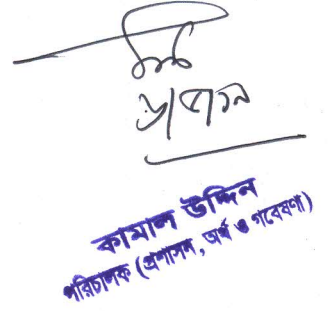 কামাল উদ্দিন
পরিচালক (প্রশাসন, অর্থ ও গবেষণা)